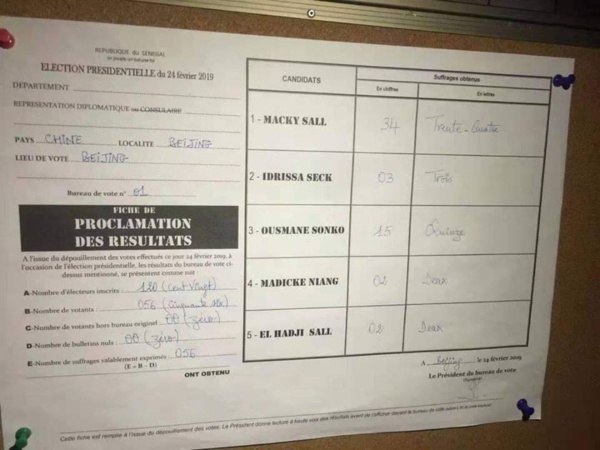 REPUBLIQUE du SENEGAL
ELECTION PRESIDENTIELLE du 24 février 2019
DEPARTEMENT
REPRESENTATION DIPLOMATIQUE ou CONSULAIRE
PAYS CHINE LOCALITE BEIJING
LIEU DE VOTE BEIJING
Bureau de vote n° 01
FICHE DE
PROCLAMATION
DES RESULTATS
A l'issue du dépouillement des votes effectués ce jour 24 février 2019, à
l'occasion de l'élection présidentielle, les résultats du bureau de vote ci-
dessus mentionné, se présentent comme suit :
A-Nombre d'électeurs inscrits : 120 (cent vingt)
B-Nombre de votants : 056 (cinquante six)
C-Nombre de votants hors bureau originel 00 (zéro)
D-Nombre de bulletins nuls : 00 (zéro)
E-Nombre de suffrages valablement exprimés : 056
(E = B - D)
ONT OBTENU
CANDIDATS
Suffrages obtenus
En chiffres En lettres
1 - MACKY SALL 34 Trente-Quatre
2 - IDRISSA SECK 03 Trois
3 - OUSMANE SONKO 15 Quinze
4 - MADICKE NIANG 02 Deux
5 - EL HADJI SALL 02 Deux
A Beijing le 24 février 2019
Le Président du bureau de vote
Cette fiche est remplie à l'issue du dépouillement des votes. Le Président donne lecture à haute voix des résultats avant de l'afficher devant le bureau de vote